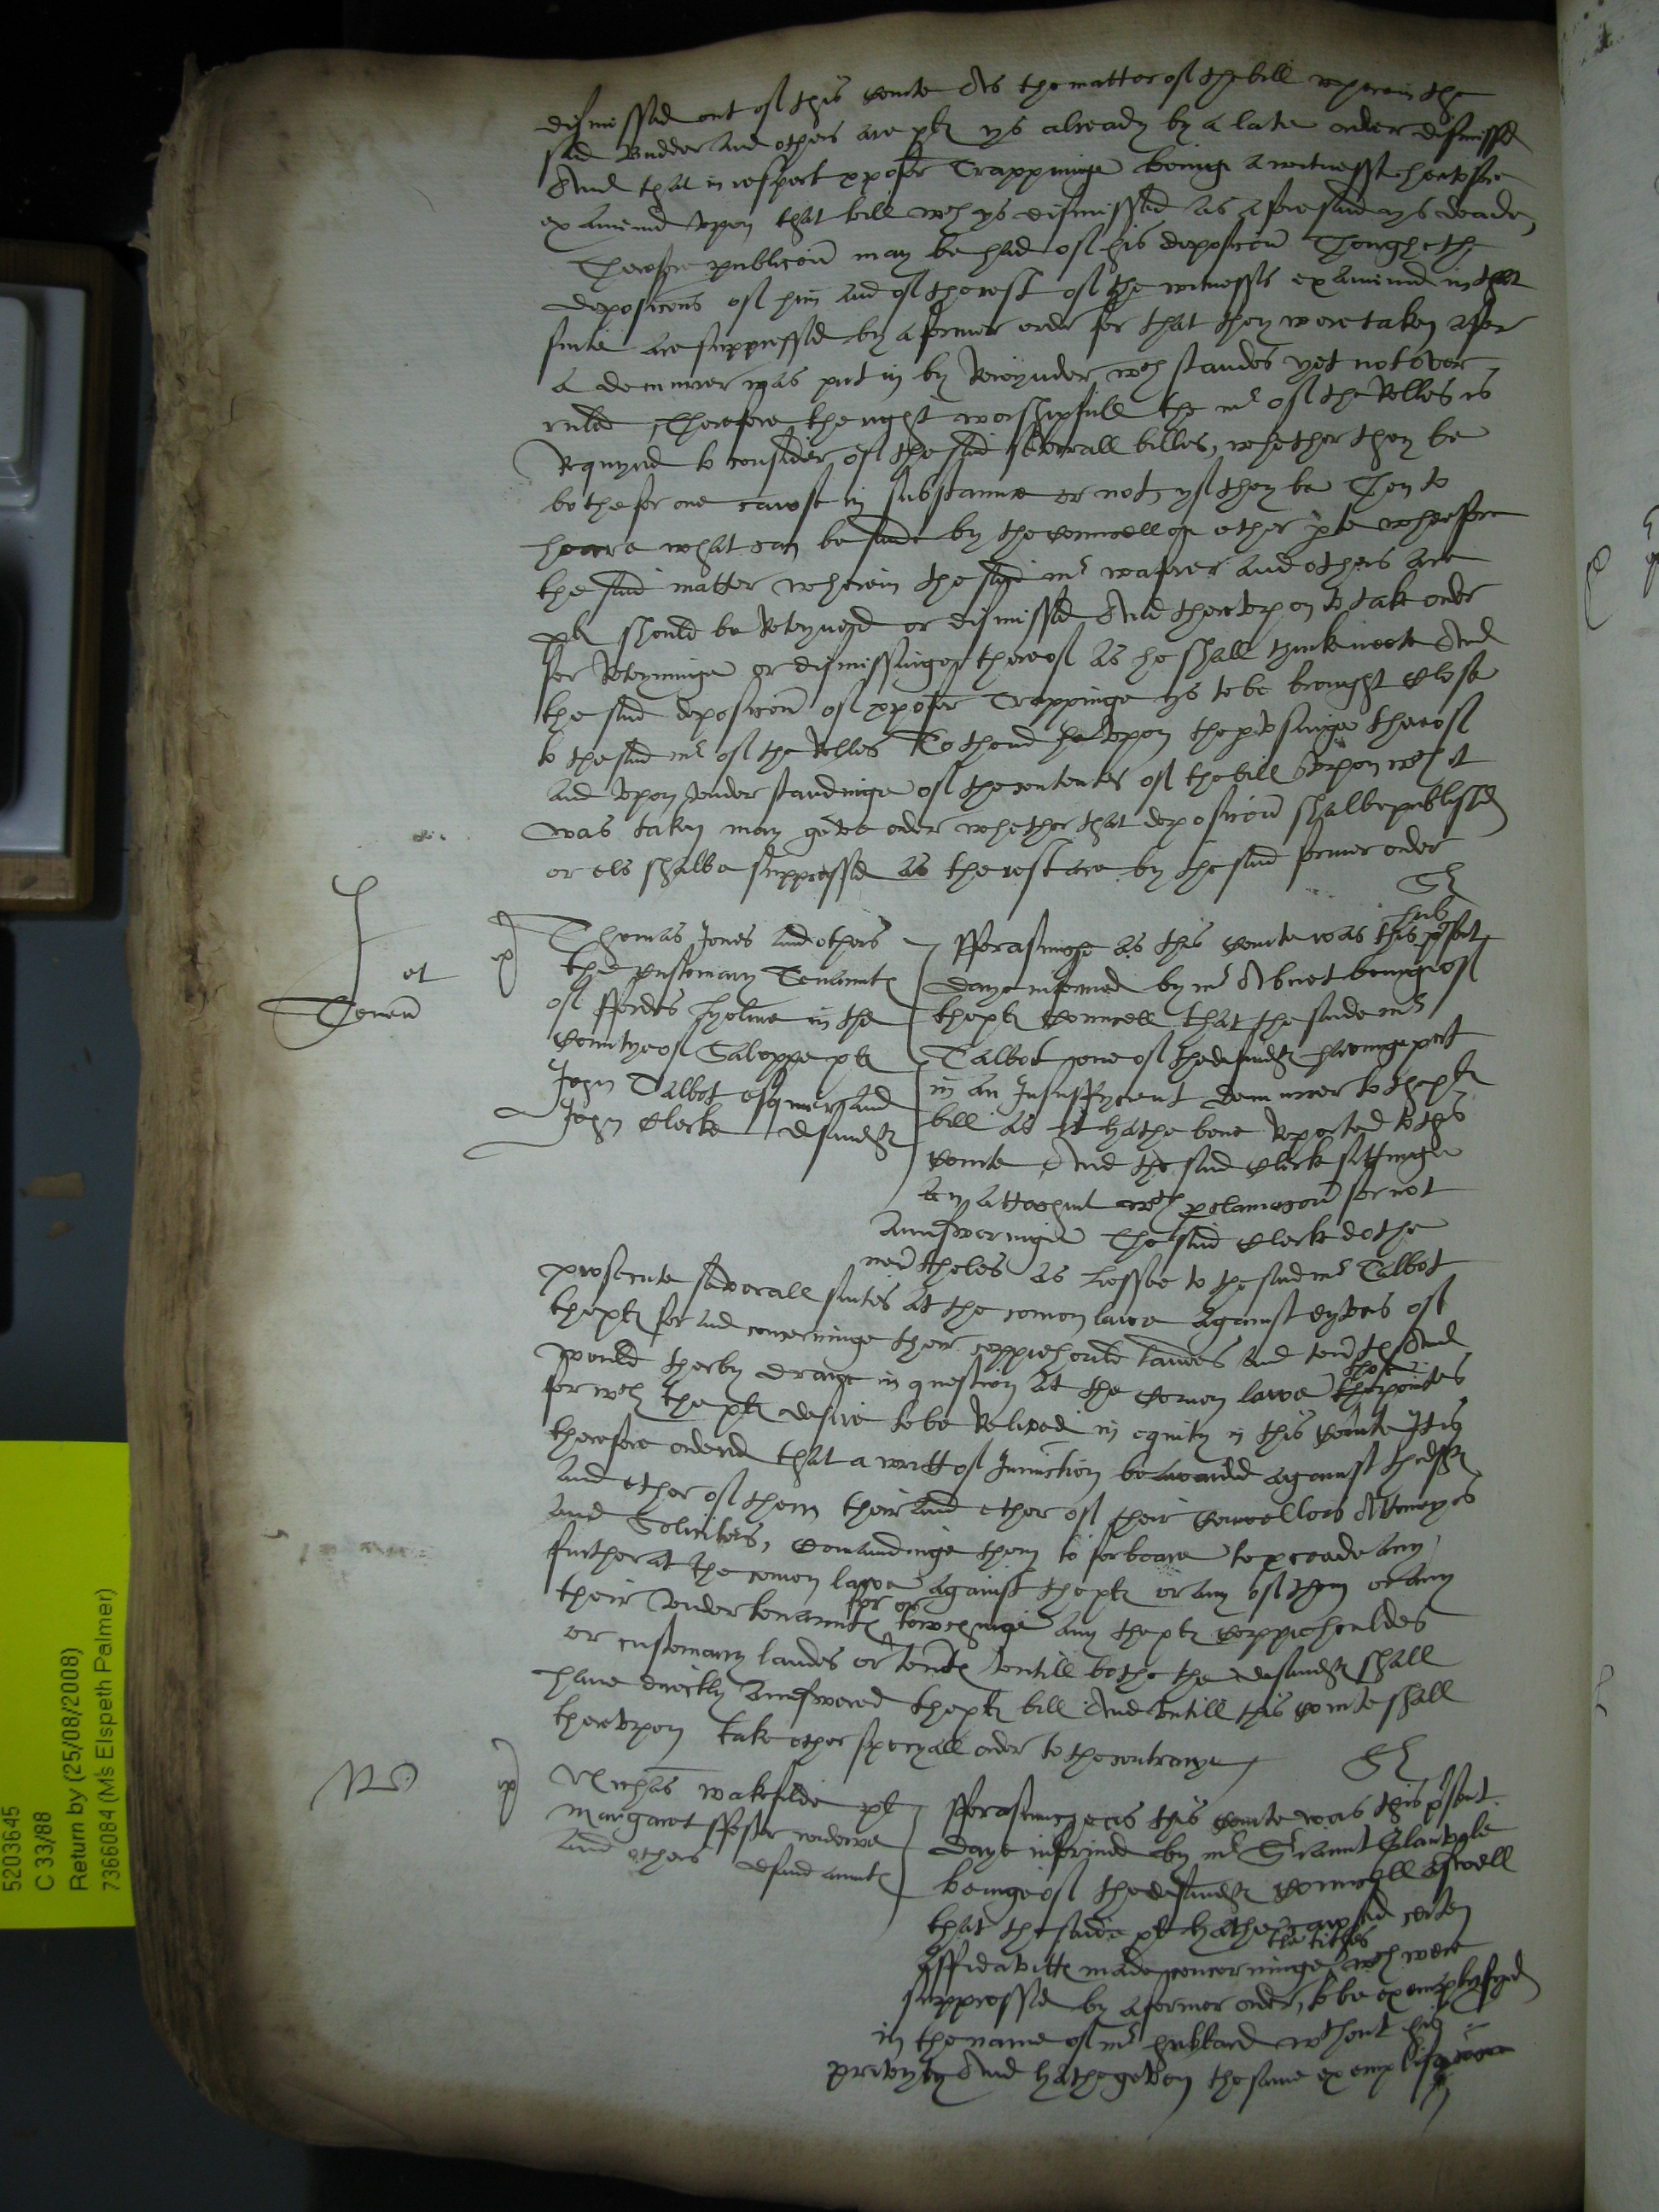 dismissed out of this courte As the matter of the bill wherein the
said Budder and others are plts ys already by a late order dismissed
And that in respect xpofer Trappinge beinge a witnesse heretofore
examined upon that bill wch ys dismissed as aforesaid ys deade,
Therefore publicon may be had of his deposicon Thoughe the
deposicons of him and of the rest of the witnesses examined in that
suite are suppressed by a former order for that they were taken after
a demurrer was put in by Reioynder wch standes yet not over
ruled, Therefore the right worshipfull the mr of the Rolles is
Requyred to consider of the said severall billes, whether they be
bothe for one cause in substance or not, yf they be Then to
heare what can be said by the councell on ether pte wherefore
the said matter wherein the said mr and others are
plts should be Reteyned or dismissed And thereupon to take order
for Reteyninge or dismissinge thereof as he shall thinke meete And
the said deposicon of xpofer Trappinge ys to be brought close
to the said mr of the Rolles To thend he upon the perusinge thereof
and upon understandinge of the contentes of the bill Upon wch it
was taken may geve order whether that deposicon shalbe published
or els shalbe suppressed as the rest are by the said former order
Thomas Jones and others
the customary Tenauntes
of Fordes in the
Countye of Saloppe plts
John Talbot esquier and
John Clerke defendts
et
Tenen
Forasmuche as this courte was this psent
daye informed by mr Abnet beinge of
the plts councell that the saide mr
Talbot one of the defendts havinge put
in an Insuffycient demurrer to the plts
bill as it hathe bene Reported to this
courte And the said Clerk sittinge
an attachmt wth proclamacon for not
aunsweringe The said Clerke dothe
nevertheles as Lessee to the said mr Talbot
prosecute severall suites at the comon lawe against dyvers of
the plts for and concerninge their coppiehould landes and tents And
would therby drawe in question at the Comon lawe those the pointes
for wch the plts desire to be Relived in equity in this Courte It is
therefore ordered that a writt of Iniunction be awarded against the defts
and ether of them their and ether of their Councellors Attorneyes
and Soliciters, Comaundinge them to forbeare to proceade any
further at the comon lawe against the plts or any of them or any
their Undertenaunts for or towchinge any the plts Coppiehouldes
or customary landes or tents Untill bothe the defendts shall
have directly aunswered the plts bill And Untill this Courte shall
thereupon take other specyall order to the contrarye
Nichas wakefilde plt
Margaret Foster widowe
and others defendauntes
Forasmuche as this Courte was this psent
daye informed by mr Srannt Glanvyle
beinge of the defendts Councell Aswell
that the saide plt hathe caused certen
the tithes
Affidavitts made concerninge wch were
suppressed by a former order, to be exemplyfyed
in the name of mr Hubbard wthout his
privyty And hathe geven the same exemplificacon
5203645
C 33/88
Return by (25/08/2008)
7366084 (Ms Elspeth Palmer)